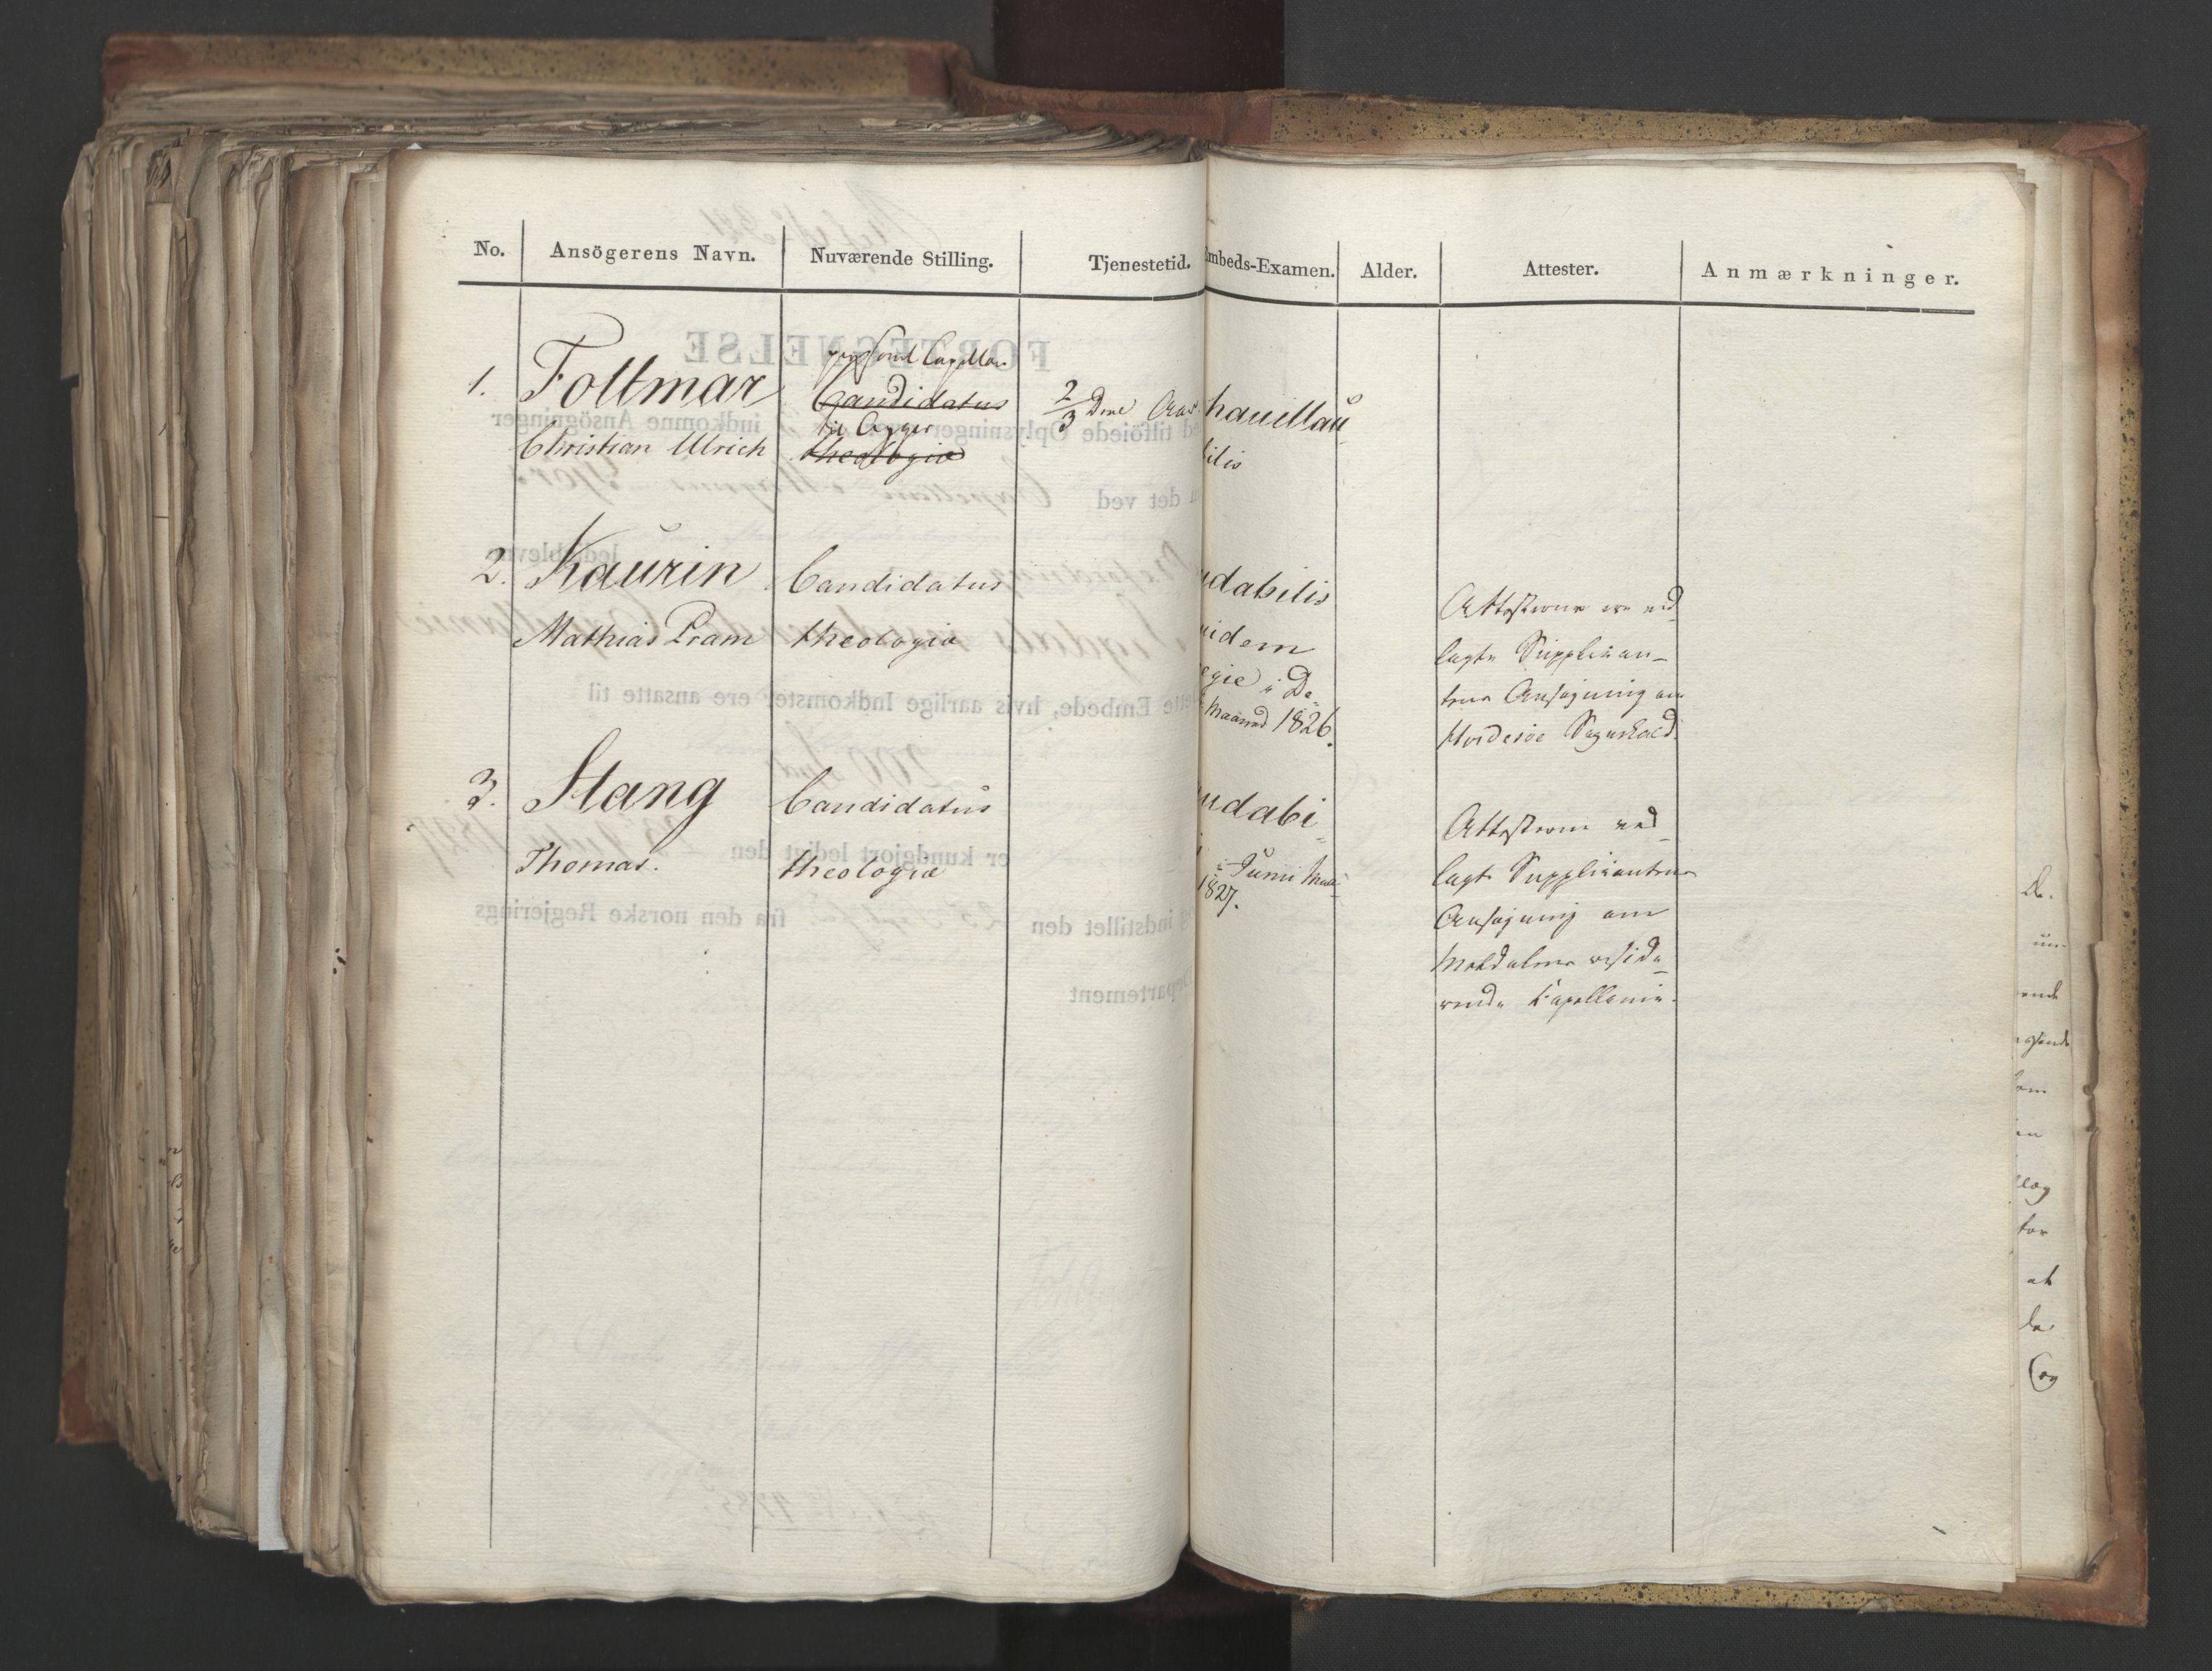 No. Ansögerens Navn. Nuværende Stilling. Tjenestetid. Embeds-Examen. Alder. Attester. Anmærkninger.
1. Foltmar
Christian Ulrich
Capellan
Candidatus
til Agger
theologiæ
2/3 Dele Aar
haud illau
bilis
2. Kaurin
Mathias Pram
Candidatus
theologiæ
udabilis
uidem
egie i De
Maaned 1826.
Attesterne ere ved
lagte Supplikan-
tens Ansøgning om
Hvidesøe Sognekald.
3. Stang
Thomas.
Candidatus
theologiæ
udabi-
i Junii Maa-
1827.
Attesterne ved-
lagte Supplikantens
Ansøgning om
Moldalens reside-
rende Capellanie.